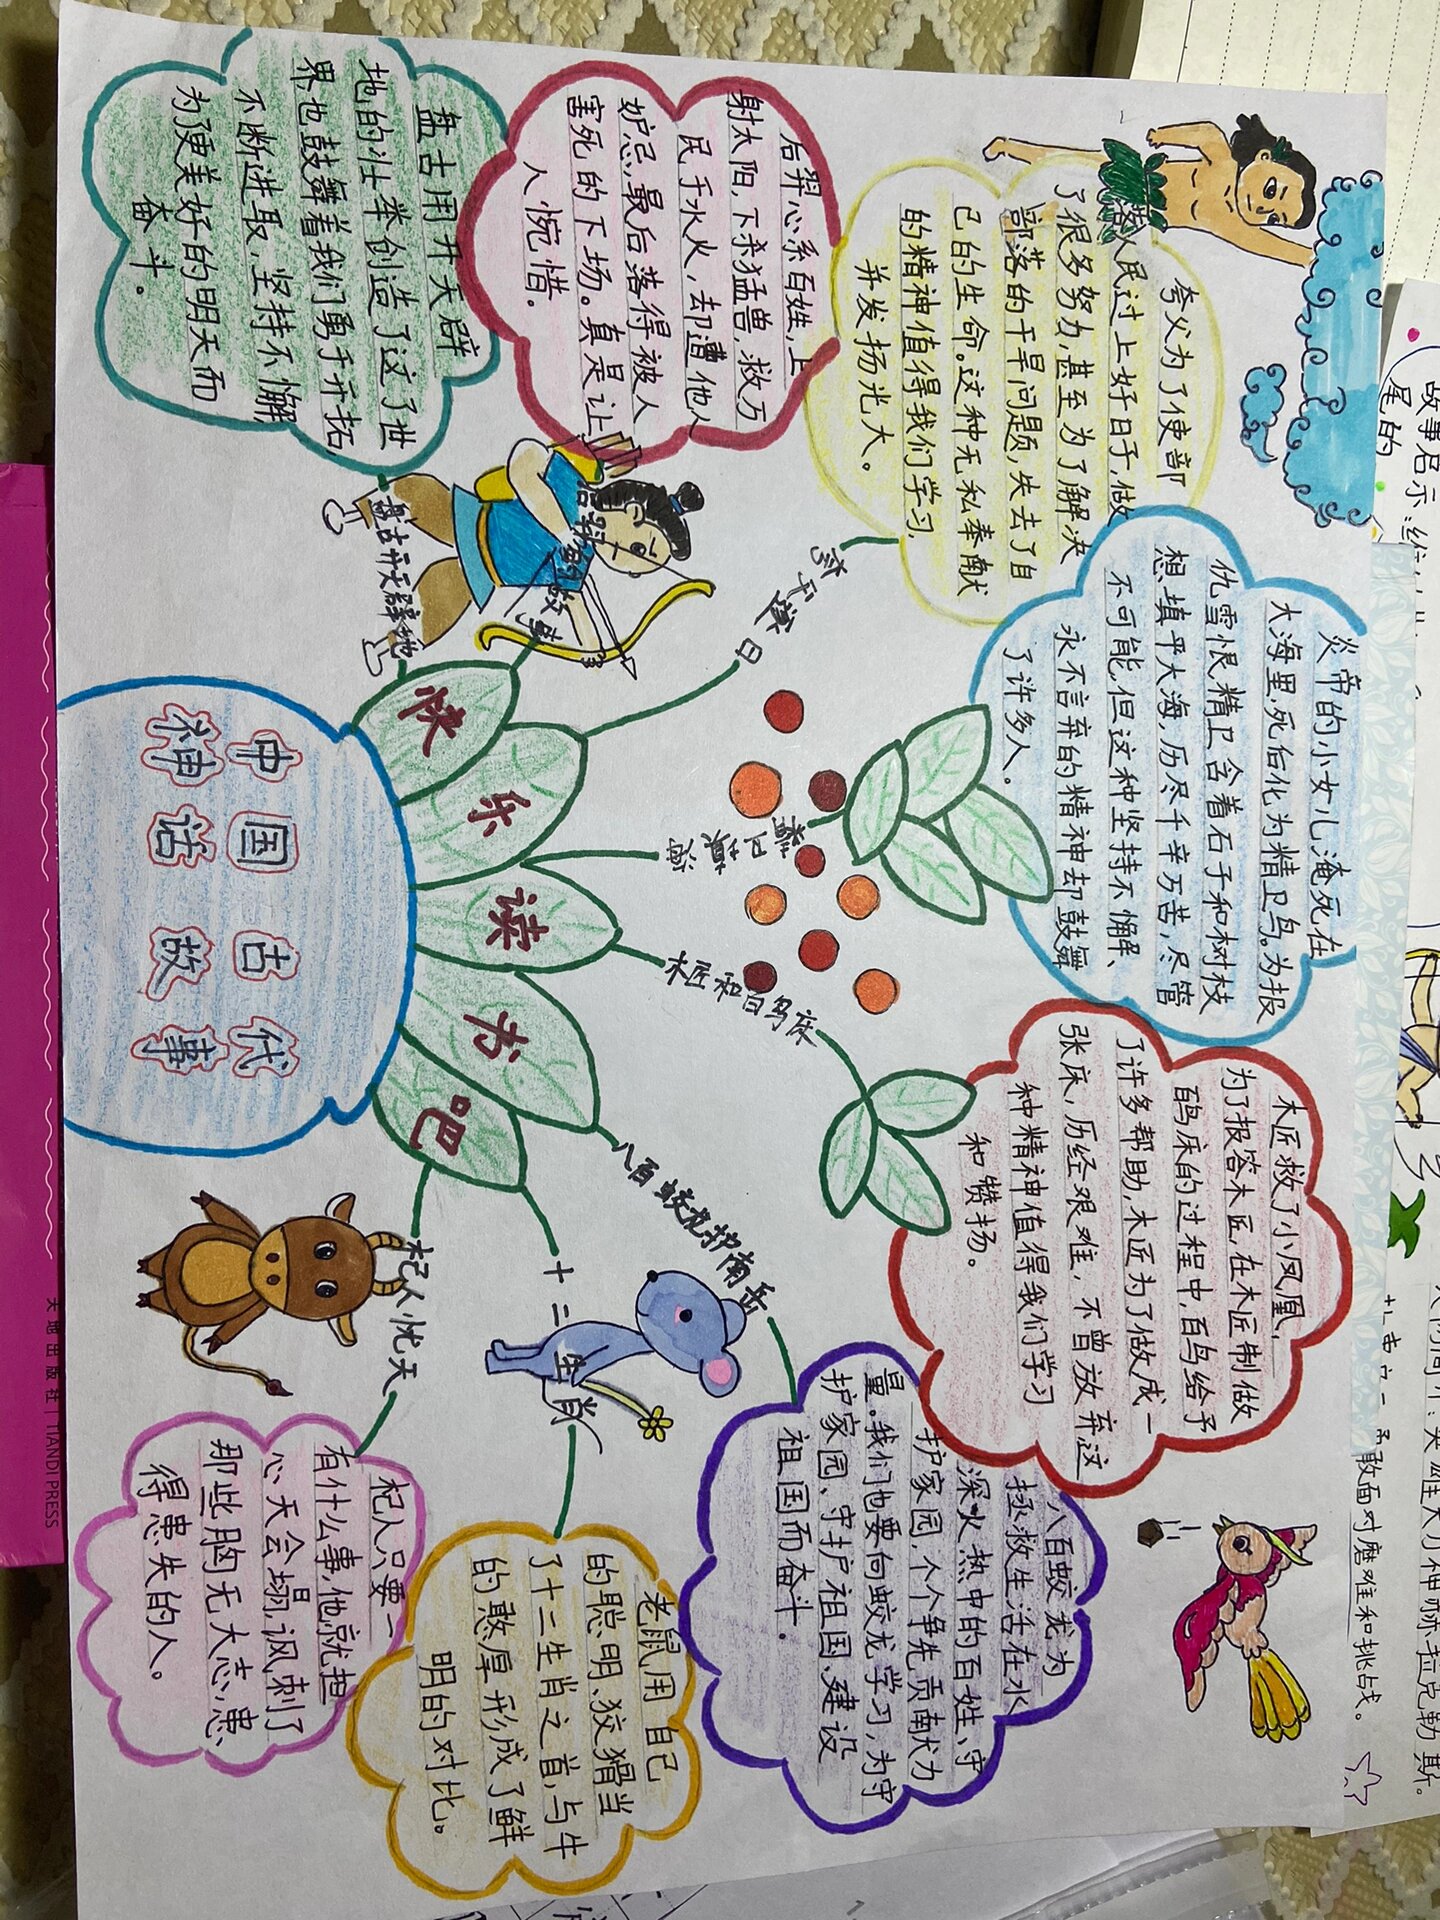 中国古代
神话故事
快
乐
读
书
吧
盘古开天辟地
盘古用开天辟
地的壮举创造了这了世
界也鼓舞着我们勇于开拓,
不断进取,坚持不懈
为了更美好的明天而
奋斗。
后羿射
的故事
后羿心系百姓,上
射太阳,下杀猛兽,救万
民于水火,却遭他人
妒忌,最后落得被人
害死的下场。真是让
人惋惜。
夸父逐日
夸父为了使部
落人民过上好日子,做
了很多努力,甚至为了解决
部落的干旱问题,失去了自
己的生命。这种无私奉献
的精神值得我们学习,
并发扬光大。
精卫填海
炎帝的小女儿淹死在
大海里,死后化为精卫鸟。为报
仇雪恨,精卫含着石子和树枝
想填平大海,历尽千辛万苦,尽管
不可能,但这种坚持不懈、
永不言弃的精神却鼓舞
了许多人。
木匠和百鸟床
木匠救了小凤凰,
为了报答木匠,在木匠制做
百鸟床的过程中,百鸟给予
了许多帮助,木匠为了做成一
张床,历经艰难,不曾放弃,这
种精神值得我们学习
和赞扬。
八百蛟龙护南岳
八百蛟龙为
拯救生活在水
深火热中的百姓、守
护家园,个个争先贡献力
量。我们也要向蛟龙学习,为守
护家园、守护祖国、建设
祖国而奋斗。
十二生肖
老鼠用自己
的聪明、狡猾当
了十二生肖之首,与牛
的憨厚形成了鲜
明的对比。
杞人忧天
杞人只要一
有什么事,他就担
心天会塌,讽刺了
那些胸无大志,患
得患失的人。
故事启示:
尾的
敢面对磨难和挑战。
天地出版社 | TIANDI PRESS